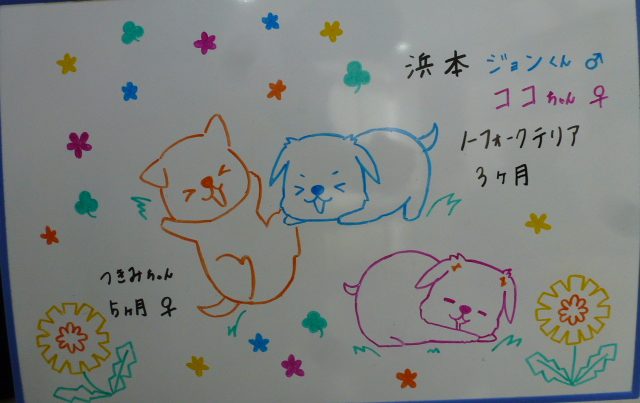 浜本 ジョンくん ♂
ココちゃん ♀
ノーフォークテリア
3ヶ月
つきみちゃん
5ヶ月 ♀